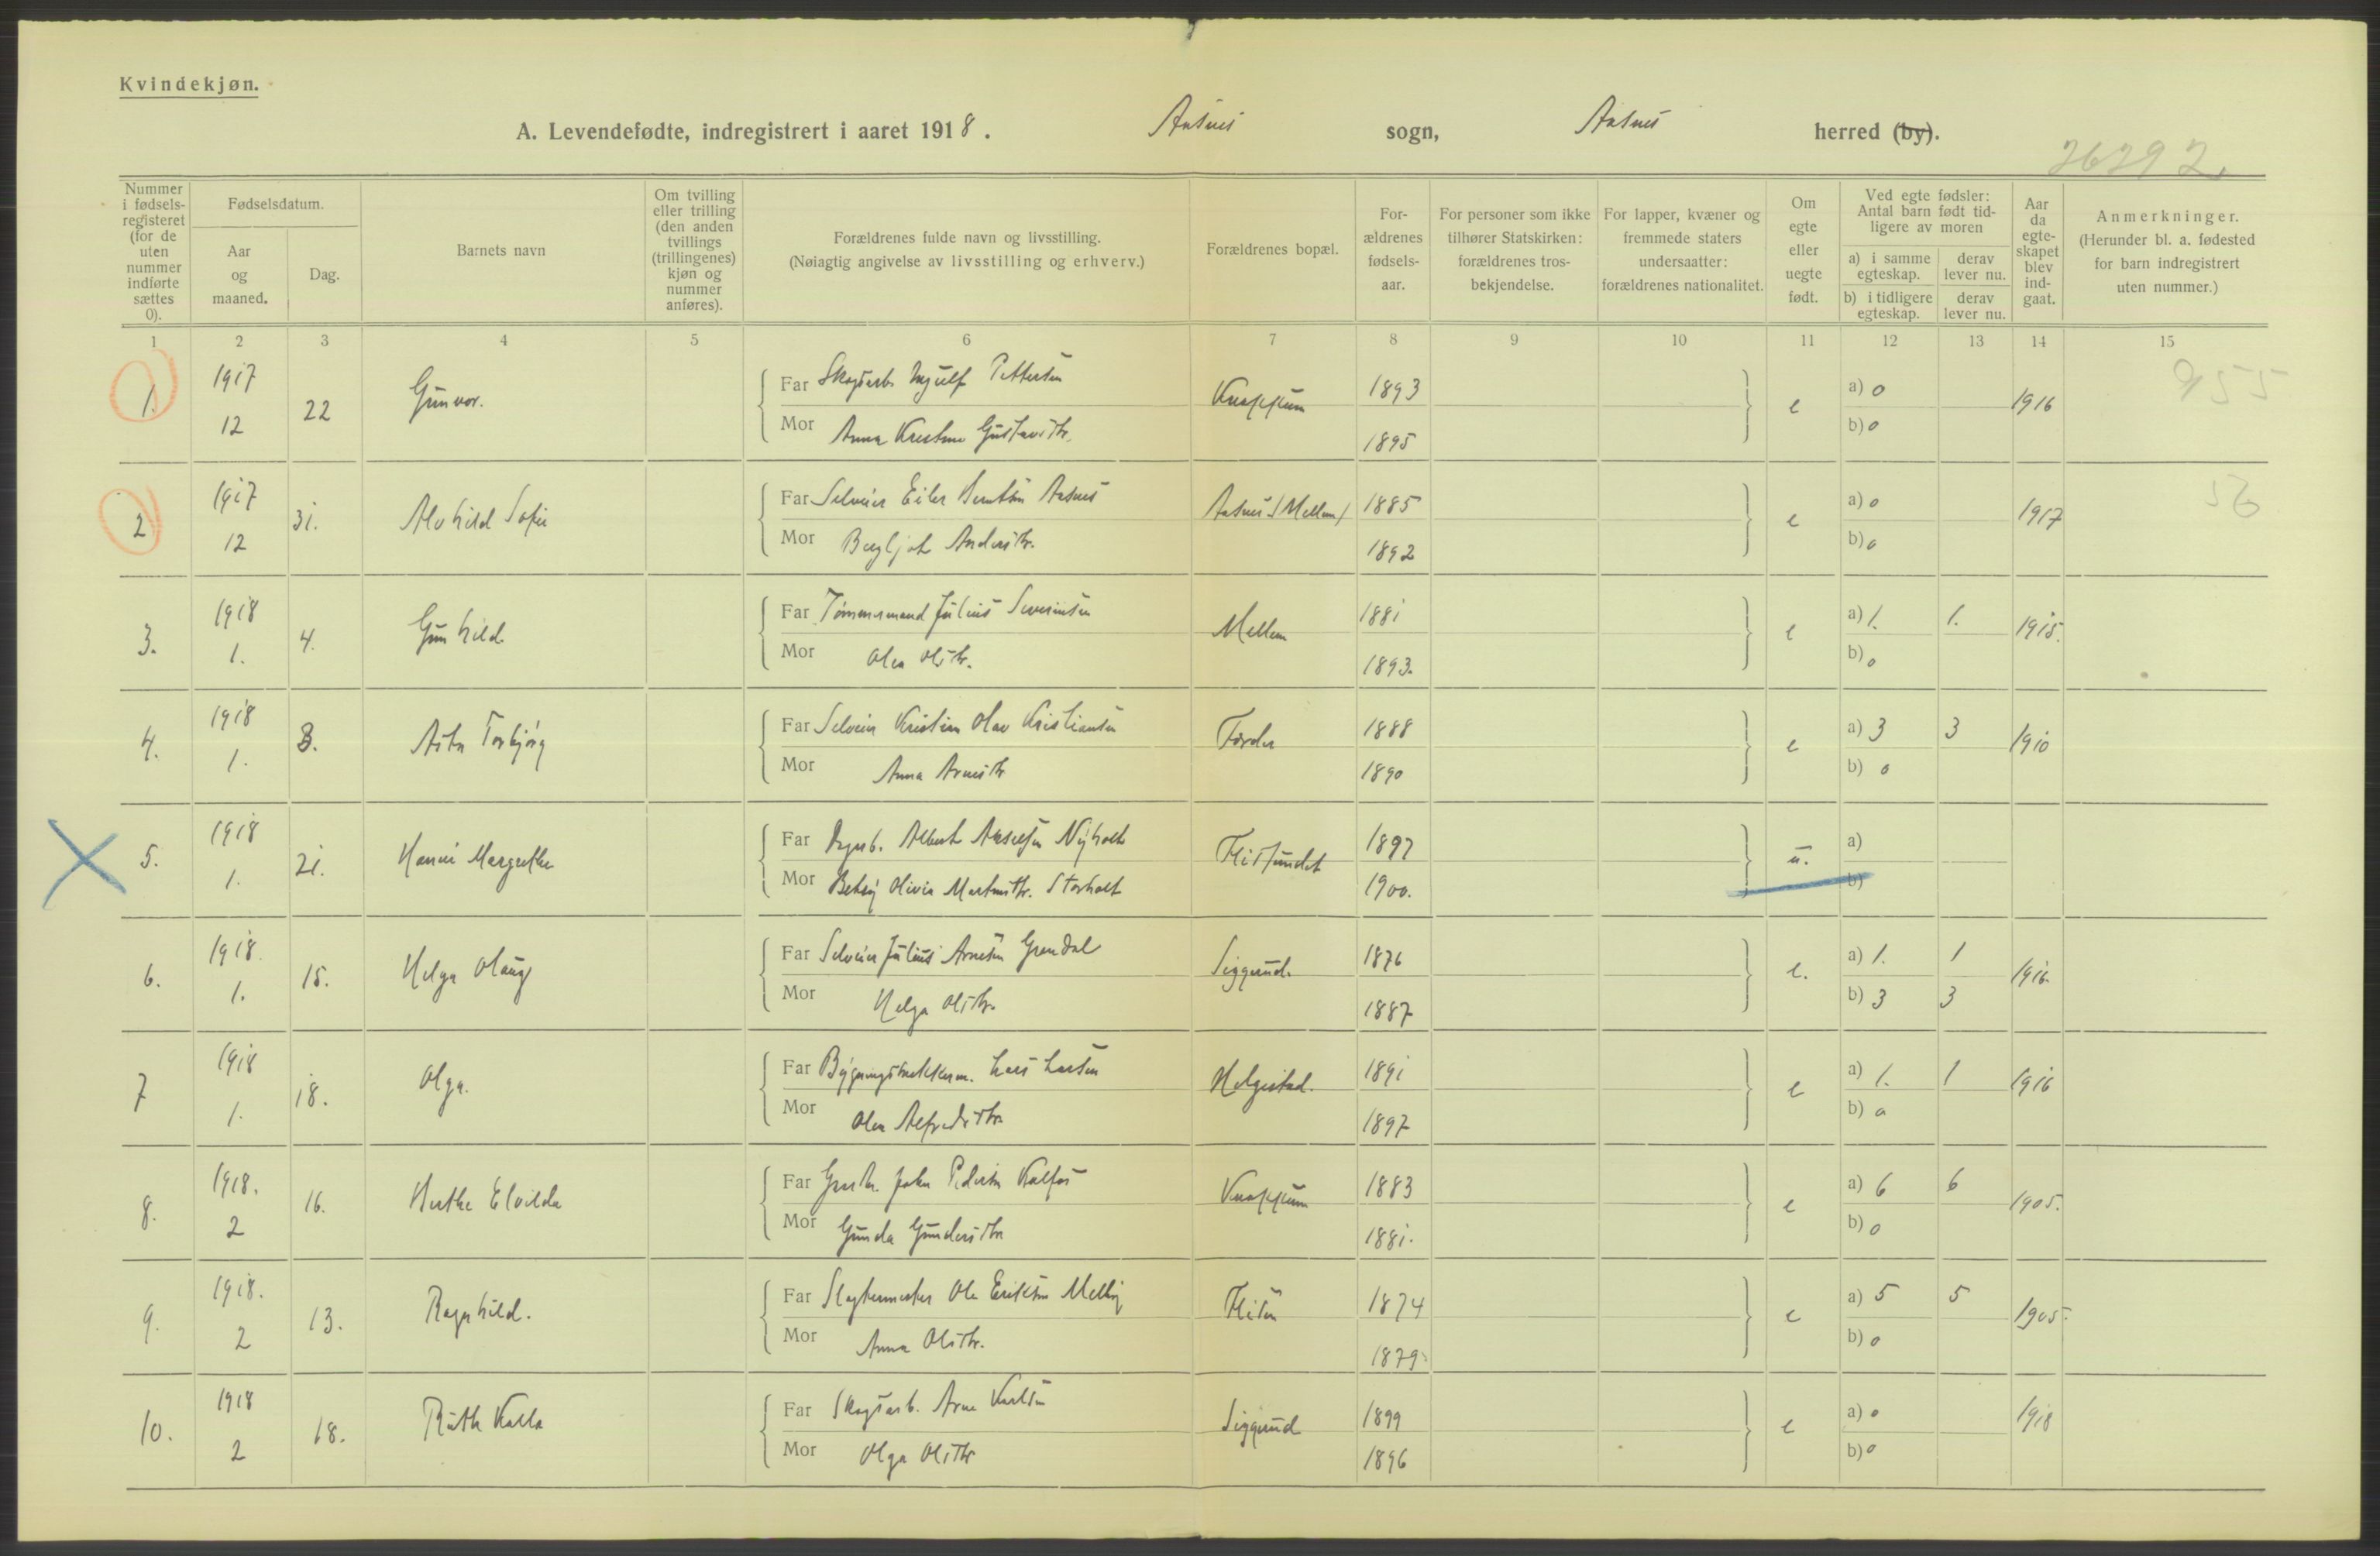 Kvindekjøn.
A. Levendefødte, indregistrert i aaret 1918. Aasnes sogn, Aasnes herred (by).
26292
Nummer i fødselsregisteret (for de uten nummer indførte sættes 0).
Fødselsdatum.
Aar og maaned.
Dag.
Barnets navn
Om tvilling eller trilling (den anden tvillings (trillingenes) kjøn og nummer anføres).
Forældrenes fulde navn og livsstilling.
(Nøiagtig angivelse av livsstilling og erhverv.)
Forældrenes bopæl.
Forældrenes fødselsaar.
For personer som ikke tilhører Statskirken: forældrenes trosbekjendelse.
For lapper, kvæner og fremmede staters undersaatter: forældrenes nationalitet.
Om egte eller uegte født.
Ved egte fødsler: Antal barn født tidligere av moren
a) i samme egteskap.
derav lever nu.
b) i tidligere egteskap.
derav lever nu.
Aar da egteskapet blev indgaat.
Anmerkninger.
(Herunder bl. a. fødested for barn indregistrert uten nummer.)
1 2 3 4 5 6 7 8 9 10 11 12 13 14 15
1. 1917 12 22 Gunvor.
Far Skogsarb. Pettersen Knappum 1893 e a) 0 1916 955
Mor Anna Kristine Gustavsdtr. 1895 b) 0
2 1917 12 31. Alvhild Sofie
Far Selveier Eiler Berntsen Aasnes Aasnes (Mellem) 1885 e a) 0 1917 56
Mor Bergljot Andersdtr. 1892 b) 0
3. 1918 1. 4. Gunhild
Far Tømmermand Julius Severinsen Mellem 1881 e a) 1. 1. 1915.
Mor Olea Olsdtr. 1893. b) 0
4. 1918 1. 3. Asta Torbjørg
Far Selveier Kristian Olav Kristiansen Førder 1888 e a) 3 3 1910
Mor Anna Arnesdtr 1890 b) 0
5. 1918 1. 21. Margrethe
Far Albert Nyholt Flissundet 1897 u. a)
Mor Betsy Olivia Martinsdtr. Storholt 1900. b)
6. 1918. 1. 15. Helga Olaug
Far Selveier Julius Arnesen Grøndal Siggerud. 1876 e. a) 1. 1 1916.
Mor Helga Olsdtr. 1887 b) 3 3
7 1918 1. 18. Olga.
Far Lars Larsen Helgestad. 1891 e a) 1. 1 1916
Mor Olea Alfredsdtr. 1897 b) 0
8. 1918. 2 16. Elvilda
Far John Pedersen Kalfos Knappum 1883 e a) 6 6 1905.
Mor Gunda Gundersdtr 1881. b) 0
9. 1918. 2 13. Ragnhild.
Far Slagtermester Ole Eriksen Melby Flisen 1874 e a) 5 5 1905.
Mor Anna Olsdtr. 1879 b) 0
10. 1918 2 18. Ruth Kalla
Far Skogsarb. Arne Karlsen Siggerud 1899 e a) 0 1918
Mor Olga Olsdtr 1896 b) 0